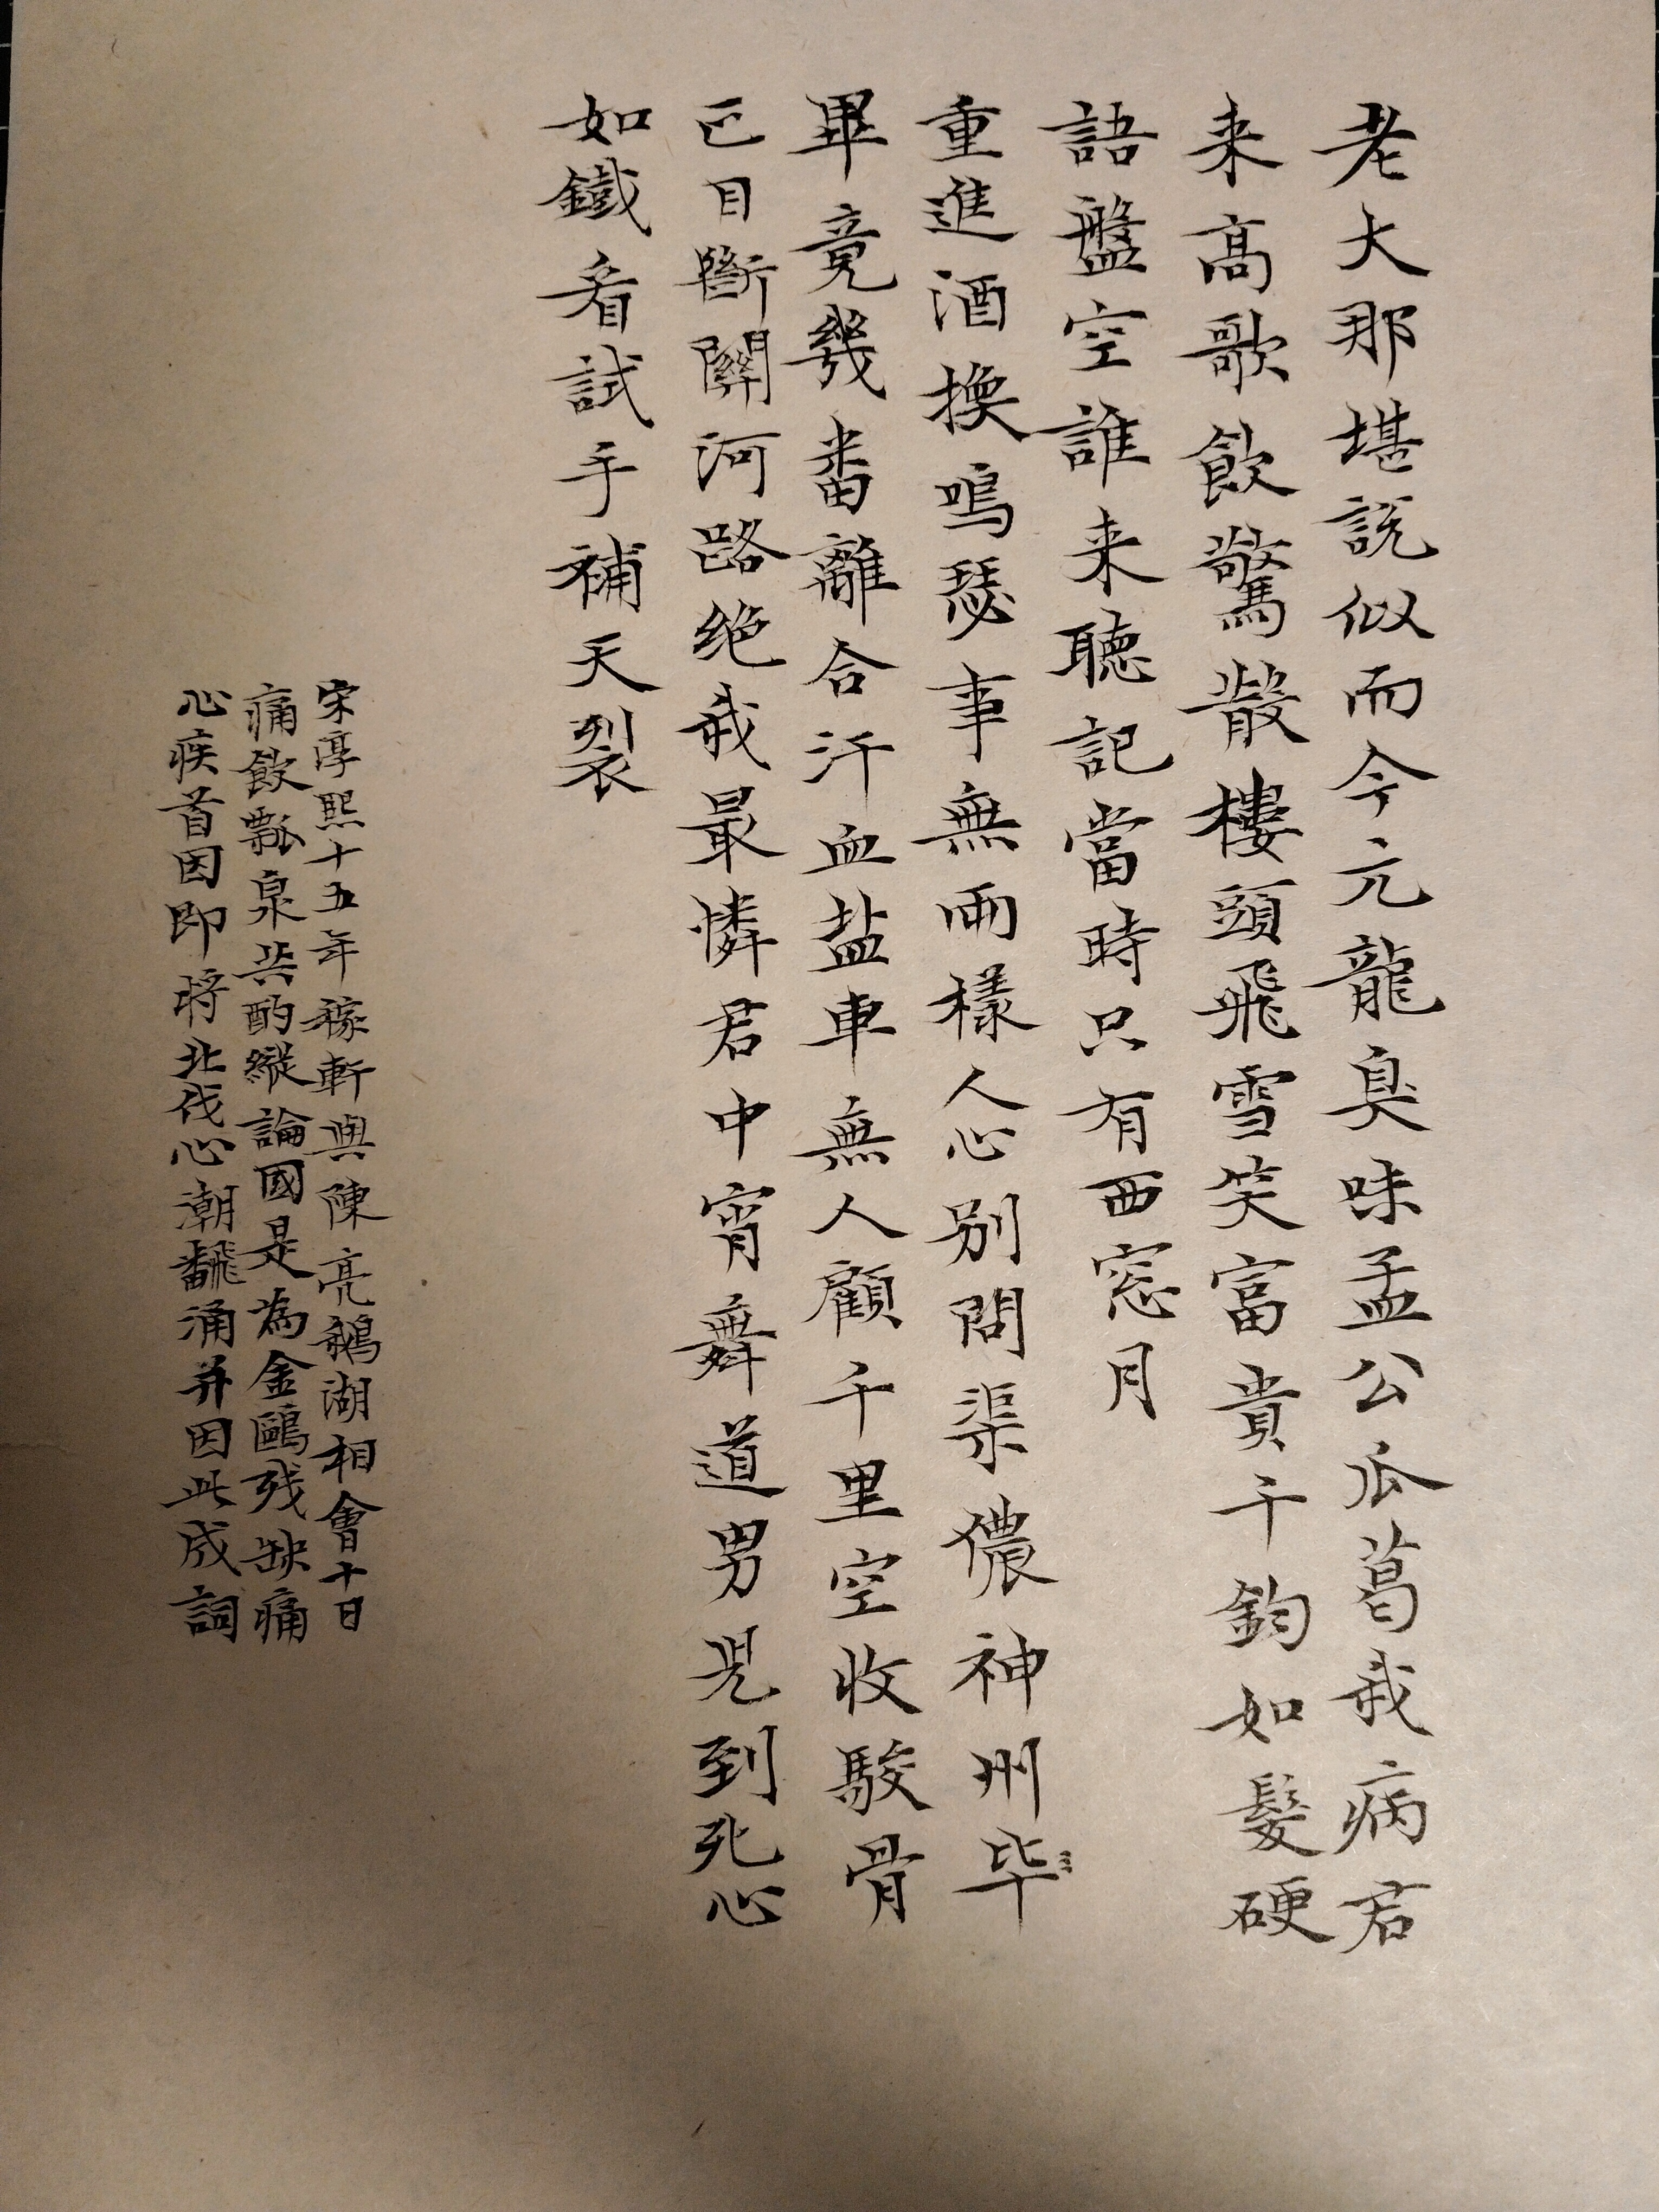 老大那堪說似而今元龍臭味孟公瓜葛我病君
来高歌飲驚散樓頭飛雪笑富貴千鈞如髮硬
語盤空誰来聽記當時只有西窓月
重進酒換鳴瑟事無兩樣人心別問渠儂神州毕
畢竟幾番離合汗血盐車無人顧千里空收駿骨
正目斷關河路绝我最憐君中宵舞道男児到死心
如鐵看試手補天裂
宋淳熙十五年稼軒與陳亮鵝湖相會十日
痛飲瓢泉共酌縱論國是為金甌残缺痛
心疾首因即将北伐心潮飜涌并因此成詞